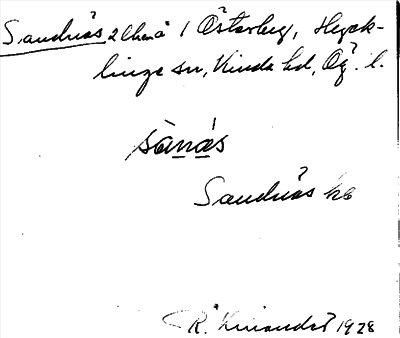 Sandnäs lhm å 1 Österby, Hyck-
linge sn, Kinda hd, Ög. l.
sànás
Sandnäs kb
R. Kinander 1928